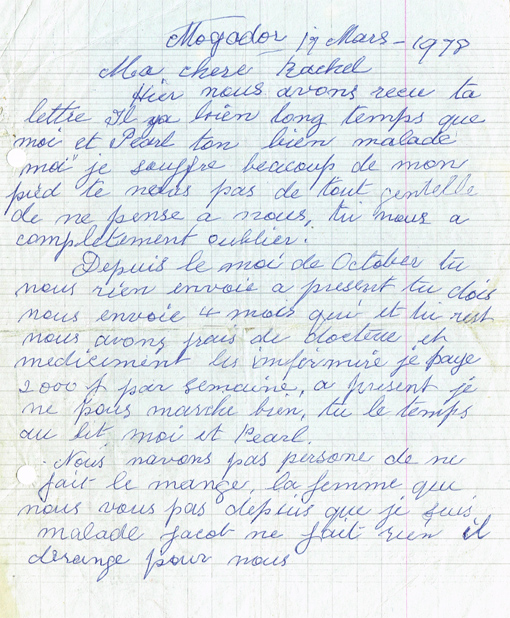 Mogador 17 Mars - 1978
Ma chere Rachel
Hier nous avons recu ta
lettre Il ya bien long temps que
moi et Pearl ton bien malade
moi" je souffre beaucoup de mon
pied te nous pas de tout gentelle
de ne pense a nous, tu nous a
completement oublier.
Depuis le moi de October tu
nous rien envoie a present tu dois
nous envoie 4 mois qui et tu rest
nous avons pais de docteur et
medicement les imfirmire je paye
2000 f par semaine, a present je
ne pous marche bien, tu le temps
au lit moi et Pearl.
Nous navons pas persone de ne
fait le mange, la femme que
nous vous pas depuis que je suis
malade Jacob ne fait rien il
derange pour nous